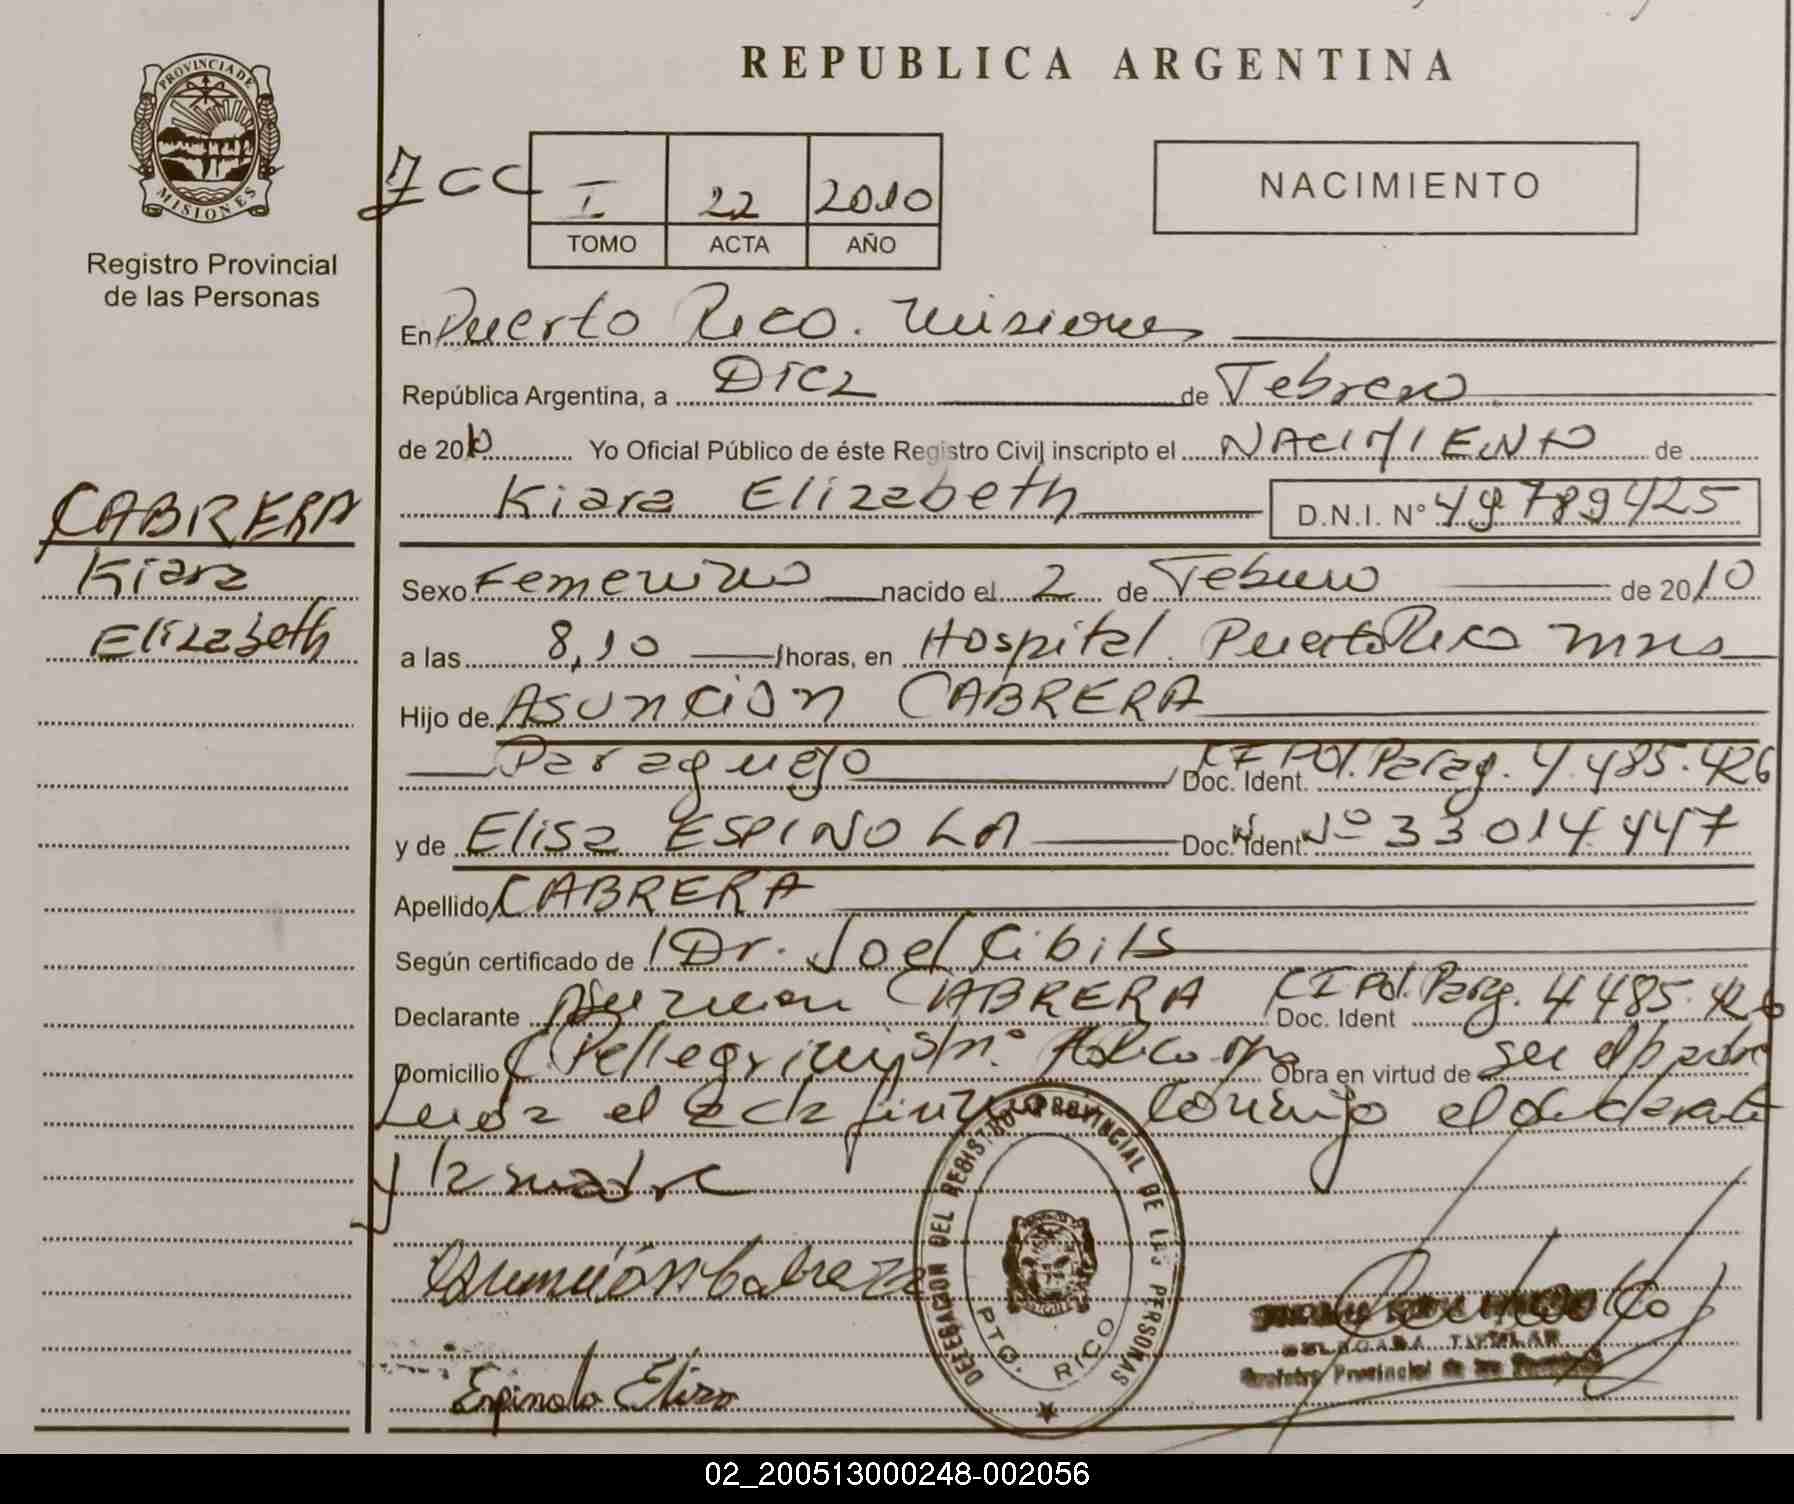 REPUBLICA ARGENTINA
PROVINCIA DE
MISIONES
Registro Provincial
de las Personas
I 22 2010
TOMO ACTA AÑO
NACIMIENTO
En Puerto Rico. Misiones
República Argentina, a Diez de Febrero
de 2010 Yo Oficial Público de éste Registro Civil inscripto el NACIMIENTO de
Kiara Elizabeth D.N.I. N° 49789425
CABRERA
Kiara
Elizabeth
Sexo Femenino nacido el 2 de Febrero de 2010
a las 8,10 horas, en Hospital. Puerto Rico Mnes
Hijo de Asunción CABRERA
Paraguayo Doc. Ident. CI Pol. Parag. 4.485.426
y de Elisa ESPINOLA Doc. Ident N° 33014447
Apellido CABRERA
Según certificado de Dr. Joel Cibils
Declarante Asuncion CABRERA Doc. Ident CI Pol. Parag. 4485.426
Domicilio C Pellegrini Obra en virtud de ser el padre
Leida el acta firman conmigo el declarante
y la madre
Asunción Cabrera
Espinola Elisa
DELEGACION DEL REGISTRO PROVINCIAL DE LAS PERSONAS
PTO. RICO
DELEGADA TITULAR
Registro Provincial de las Personas
02_200513000248-002056